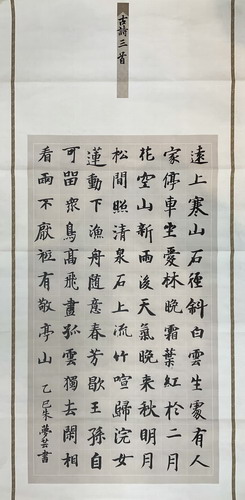 古詩三首
遠上寒山石徑斜白雲生處有人
家停車坐愛林晚霜葉紅於二月
花空山新雨後天氣晚來秋明月
松間照清泉石上流竹喧歸浣女
蓮動下漁舟隨意春芳歇王孫自
可留衆鳥高飛盡孤雲獨去閑相
看兩不厭衹有敬亭山 乙巳朱夢芸書